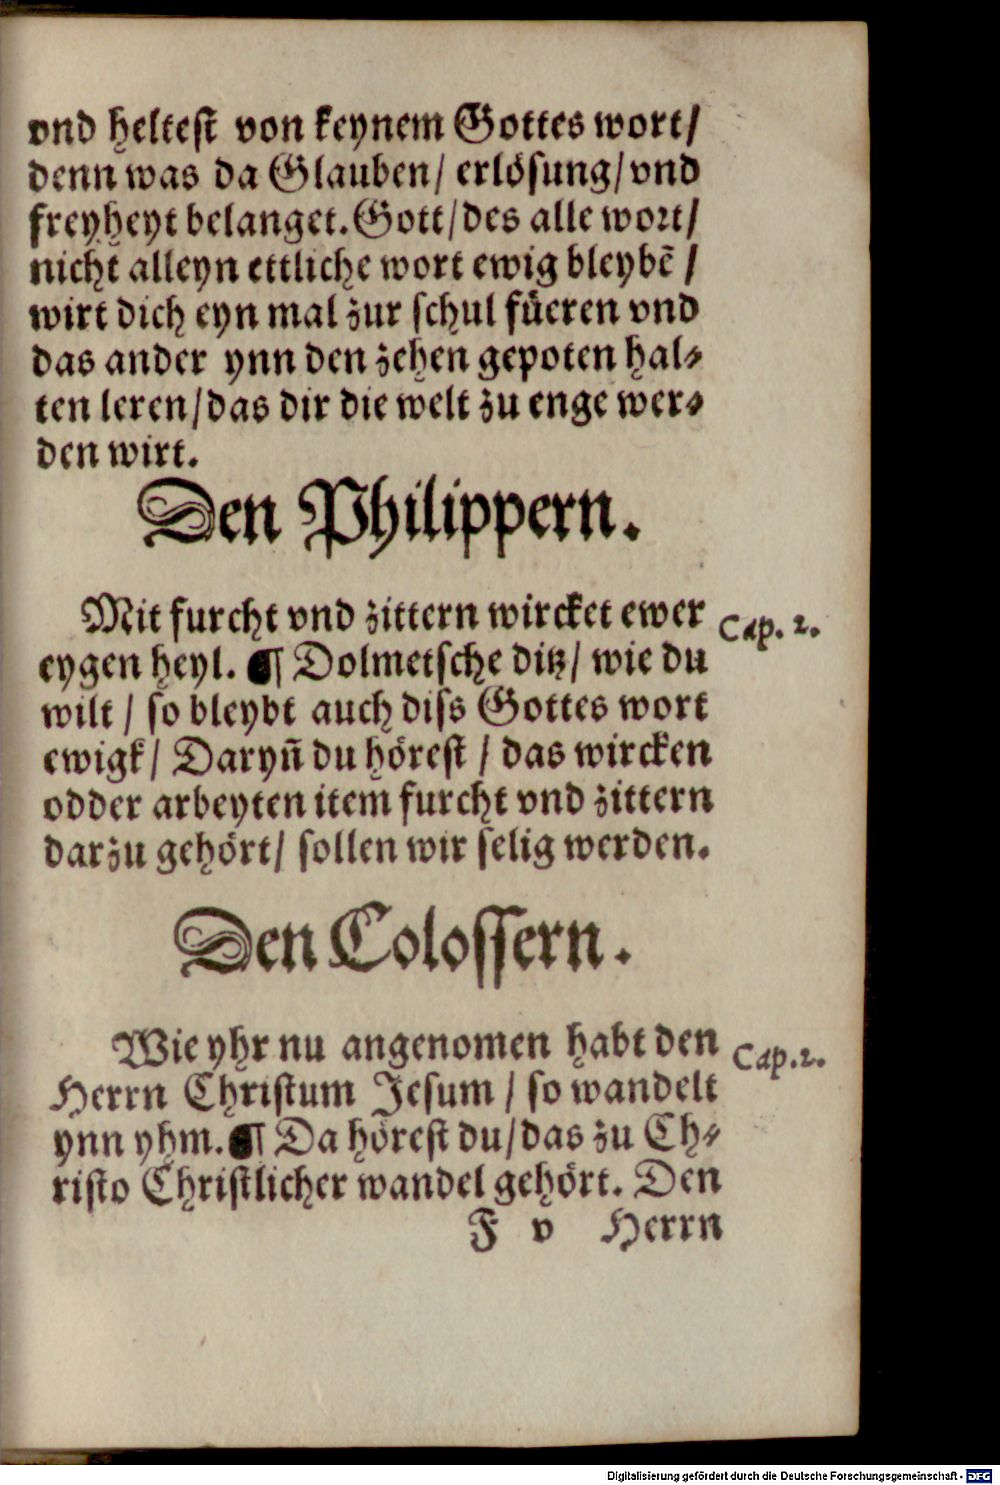 vnd heltest von keynem Gottes wort/
denn was da Glauben/ erlösung/vnd
freyheyt belanget. Gott/des alle wort/
nicht alleyn ettliche wort ewig bleybē /
wirt dich eyn mal zur schul fueren vnd
das ander ynn den zehen gepoten hal⸗
ten leren/das dir die welt zu enge wer⸗
den wirt.
Den Philippern.
Mit furcht vnd zittern wircket ewer
Cap. 2.
eygen heyl. ¶ Dolmetsche ditz/ wie du
wilt / so bleybt auch diss Gottes wort
ewigk/ Daryn̄ du hörest / das wircken
odder arbeyten item furcht vnd zittern
darzu gehört/ sollen wir selig werden.
Den Colossern.
Wie yhr nu angenomen habt den
Cap. 2.
Herrn Christum Jesum / so wandelt
ynn yhm. ¶ Da hörest du/das zu Ch⸗
risto Christlicher wandel gehört. Den
F v Herrn
Digitalisierung gefördert durch die Deutsche Forschungsgemeinschaft - DFG